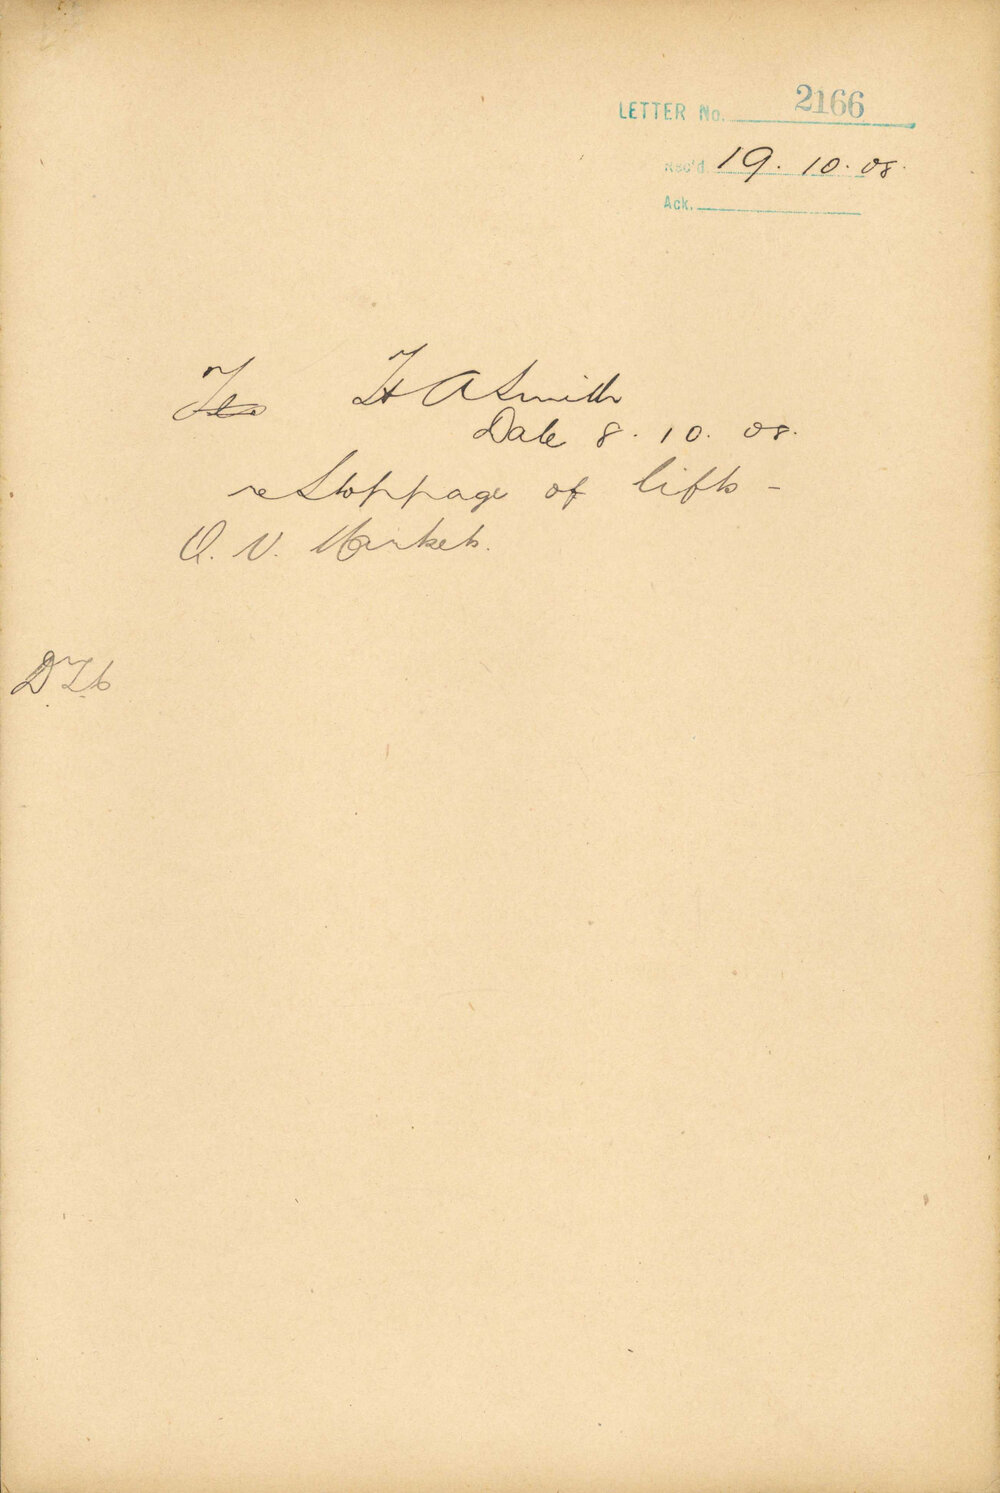 LETTER No. 2166
Rec'd 19. 10. 08.
Ack.
H A Smith
Date 8. 10. 08.
re Stoppage of lifts -
Q. V. Markets.